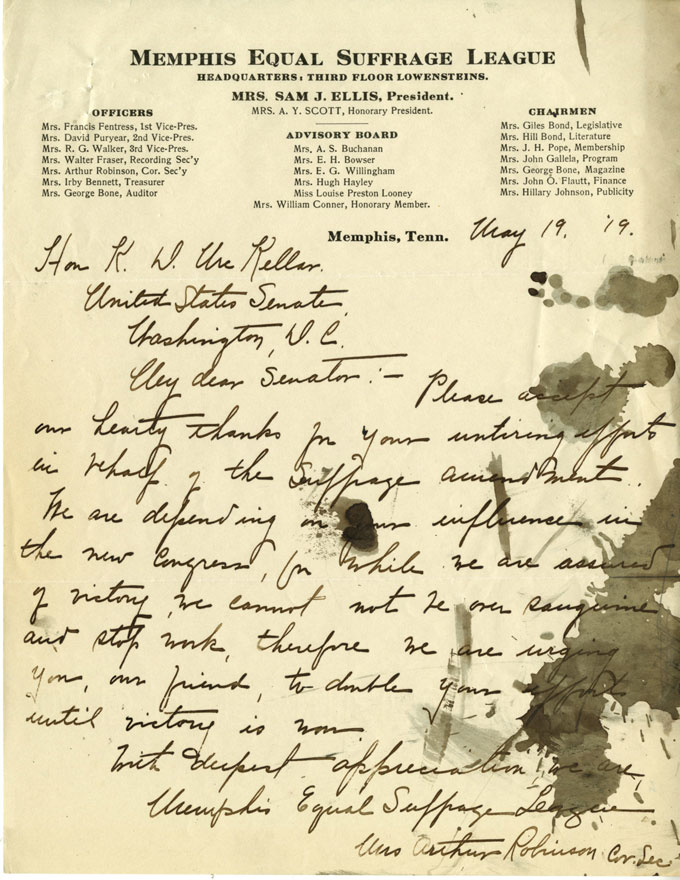 MEMPHIS EQUAL SUFFRAGE LEAGUE
HEADQUARTERS: THIRD FLOOR LOWENSTEINS.
MRS. SAM J. ELLIS, President.
MRS. A. Y. SCOTT, Honorary President.
OFFICERS
Mrs. Francis Fentress, 1st Vice-Pres.
Mrs. David Puryear, 2nd Vice-Pres.
Mrs. R. G. Walker, 3rd Vice-Pres.
Mrs. Walter Fraser, Recording Sec'y
Mrs. Arthur Robinson, Cor. Sec'y
Mrs. Irby Bennett, Treasurer
Mrs. George Bone, Auditor
ADVISORY BOARD
Mrs. A. S. Buchanan
Mrs. E. H. Bowser
Mrs. E. G. Willingham
Mrs. Hugh Hayley
Miss Louise Preston Looney
Mrs. William Conner, Honorary Member.
CHAIRMEN
Mrs. Giles Bond, Legislative
Mrs. Hill Bond, Literature
Mrs. J. H. Pope, Membership
Mrs. John Gallela, Program
Mrs. George Bone, Magazine
Mrs. John O. Flautt, Finance
Mrs. Hillary Johnson, Publicity
Memphis, Tenn. May 19. '19.
Hon K. D. Mc Kellar.
United States Senate,
Washington, D.C.
My dear Senator:- Please accept
our hearty thanks for your untiring efforts
in behalf of the Suffrage amendment.
We are depending on your influence in
the new Congress, for while we are assured
of victory, we cannot not be over sanguine
and stop work, therefore we are urging
you, our friend, to double your efforts
until victory is won.
With deepest appreciation, we are,
Memphis Equal Suffrage League
Mrs Arthur Robinson Cor. Sec'